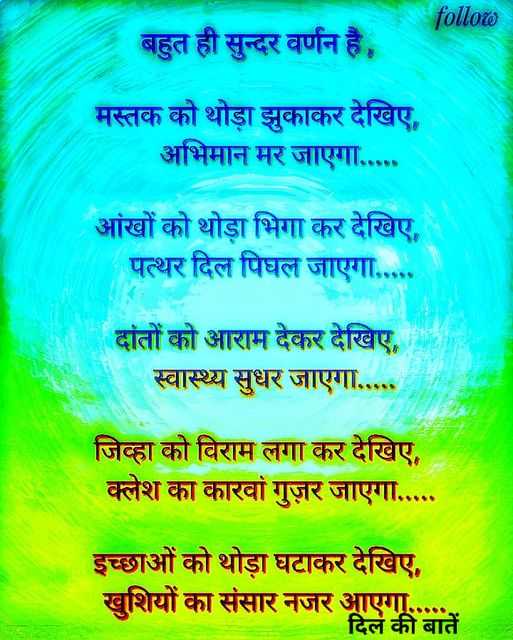 follow
बहुत ही सुन्दर वर्णन है ,
मस्तक को थोड़ा झुकाकर देखिए,
अभिमान मर जाएगा.....
आंखों को थोड़ा भिगा कर देखिए,
पत्थर दिल पिघल जाएगा.....
दांतों को आराम देकर देखिए,
स्वास्थ्य सुधर जाएगा.....
जिव्हा को विराम लगा कर देखिए,
क्लेश का कारवां गुज़र जाएगा.....
इच्छाओं को थोड़ा घटाकर देखिए,
खुशियों का संसार नजर आएगा.....
दिल की बातें